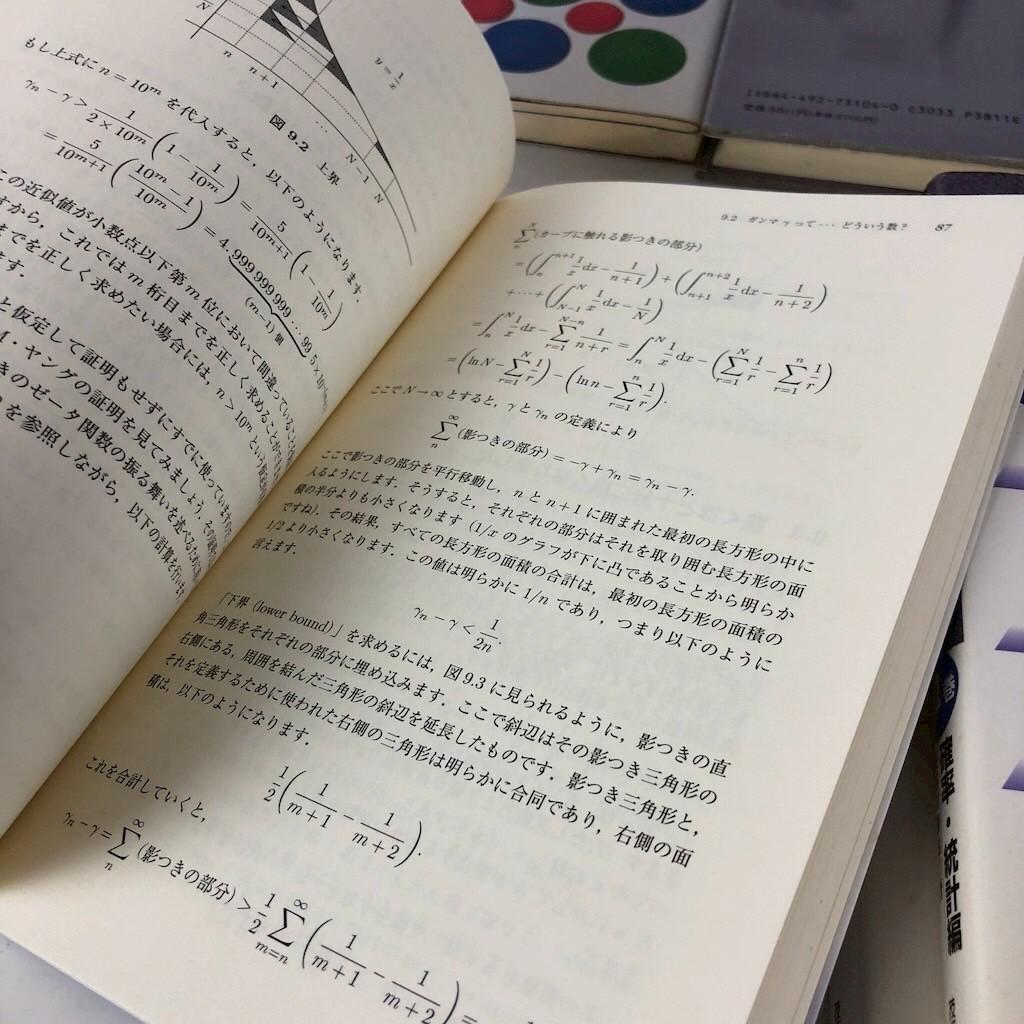 N
n
n+1
…
N−1
N
y=1/x
図 9.2 上界
もし上式に n = 10^m を代入すると, 以下のようになります.
γ_n − γ > 1/(2×10^m) (1 − 1/10^m) = 5/10^{m+1} (1 − 1/10^m)
= 5/10^{m+1} ((10^m − 1)/10^m) = 4.999999999…99 5×10
(m−1) 個
この近似値が小数点以下第 m 位において間違っていること
すから, これでは m 桁目までを正しく求めることができ
までを正しく求めたい場合には, n > 10^m という
ます.
と仮定して証明もせずにすでに使っていますので,
・ヤングの証明を見てみましょう. その証明
きのゼータ関数の振る舞いを述べるために
を参照しながら, 以下の計算を行います
9.2 ガンマ γ って… どういう数? 87
∑_n^N (カーブに触れる影つきの部分)
= (∫_n^{n+1} 1/x dx − 1/(n+1)) + (∫_{n+1}^{n+2} 1/x dx − 1/(n+2))
+ ⋯ + (∫_{N−1}^N 1/x dx − 1/N)
= ∫_n^N 1/x dx − ∑_{r=1}^{N−n} 1/(n+r) = ∫_n^N 1/x dx − (∑_{r=1}^N 1/r − ∑_{r=1}^n 1/r)
= (ln N − ∑_{r=1}^N 1/r) − (ln n − ∑_{r=1}^n 1/r).
ここで N → ∞ とすると, γ と γ_n の定義により
∑_n^∞ (影つきの部分) = −γ + γ_n = γ_n − γ.
ここで影つきの部分を平行移動し, n と n+1 に囲まれた最初の長方形の中に
入るようにします. そうすると, それぞれの部分はそれを取り囲む長方形の面
積の半分よりも小さくなります (1/x のグラフが下に凸であることから明らか
ですね). その結果, すべての長方形の面積の合計は, 最初の長方形の面積の
1/2 より小さくなります. この値は明らかに 1/n であり, つまり以下のように
言えます.
γ_n − γ < 1/2n.
「下界 (lower bound)」を求めるには, 図 9.3 に見られるように, 影つきの直
角三角形をそれぞれの部分に埋め込みます. ここで斜辺はその影つき三角形の
右側にある, 周囲を結んだ三角形の斜辺を延長したものです. 影つき三角形と,
それを定義するために使われた右側の三角形は明らかに合同であり, 右側の面
積は, 以下のようになります.
1/2 (1/(m+1) − 1/(m+2)).
これを合計していくと,
γ_n − γ = ∑_n^∞ (影つきの部分) > 1/2 ∑_{m=n}^∞ (1/(m+1) − 1/(m+2)) =
ISBN4-492-73104-0 C3033 P3811E
解・統計編